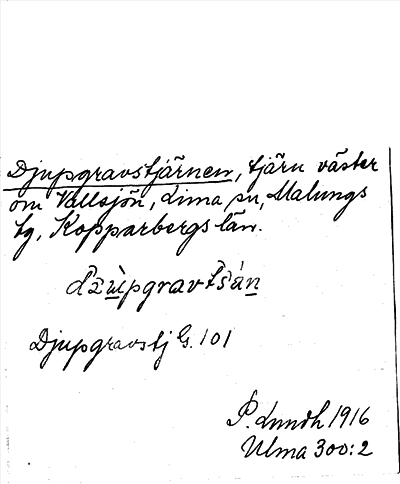 Djupgravstjärnen, tjärn väster
om Vallsjön, Lima sn, Malungs
tg, Kopparbergs län.
Djupgravstj G. 101
P. Lundh 1916
Ulma 300:2